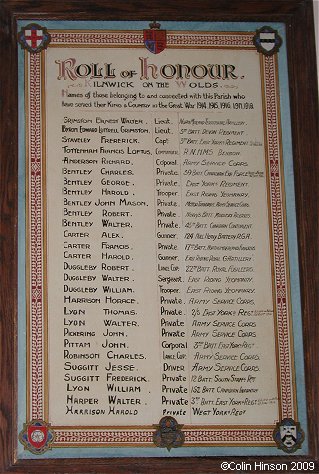 ROLL OF HONOUR.
KILNWICK ON THE WOLDS.
Names of those belonging to and connected with this Parish who
have served their King & Country in the Great War 1914, 1915, 1916, 1917, 1918.
GRIMSTON ERNEST WALTER. Lieut.
BYRON EDWARD LITTELL GRIMSTON. Lieut. 3RD BATT DEVON REGIMENT
STAVELEY FREDERICK. Capt. 5TH BATT. EAST YORK'S REGIMENT
TOTTENHAM FRANCIS LOFTUS. R.H.M.S.
ANDERSON RICHARD. Corporal. ARMY SERVICE CORPS.
BENTLEY CHARLES. Private.
BENTLEY GEORGE. Private. EAST YORK'S REGIMENT.
BENTLEY HAROLD. Trooper. EAST RIDING YEOMANRY.
BENTLEY JOHN MASON. Private. ARMY SERVICE CORPS.
BENTLEY ROBERT. Private.
BENTLEY WALTER. Private.
CARTER ALEX. Gunner. HEAVY BATTERY R.G.A.
CARTER FRANCIS. Private. 17TH BATT.
CARTER HAROLD. Gunner. EAST RIDING ROYAL G. ARTILLERY.
DUGGLEBY ROBERT. Lance Cor. 22ND BATT. ROYAL FUSILIERS.
DUGGLEBY WALTER. Sergeant. EAST RIDING YEOMANRY.
DUGGLEBY WILLIAM. Trooper. EAST RIDING YEOMANRY.
HARRISON HORACE. Private. ARMY SERVICE CORPS.
LYON THOMAS. Private 2/5 EAST YORK'S REGT
LYON WALTER. Private ARMY SERVICE CORPS.
PICKERING JOHN. Private ARMY SERVICE CORPS.
PITTAM JOHN. Corporal 3RD BATT EAST YORK REGT
ROBINSON CHARLES. Lance Cor. ARMY SERVICE CORPS.
SUGGITT JESSE. Driver ARMY SERVICE CORPS.
SUGGITT FREDERICK. Private 12 BATT. SOUTH STAFFS REGT
LYON WILLIAM. Private BATT. INFANTRY
HARPER WALTER. Private 3RD BATT. EAST YORK'S REGT
HARRISON HAROLD Private WEST YORKS REGT
©Colin Hinson 2009